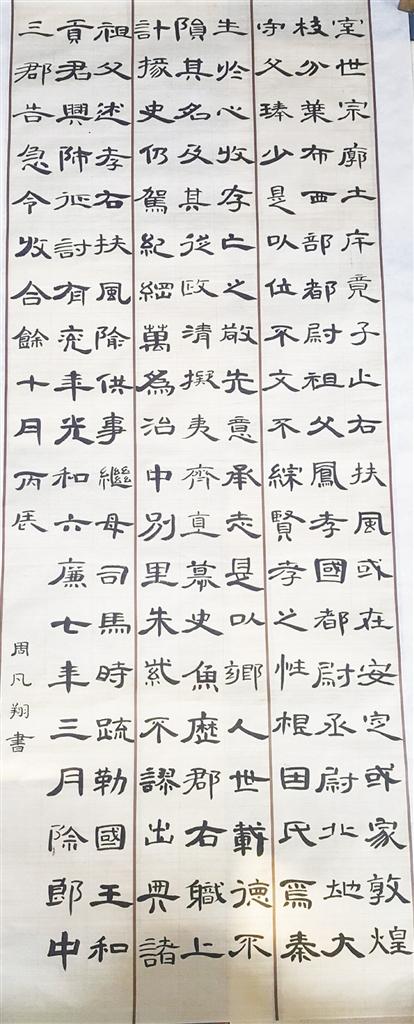 室世宗廓土斥竟子止右扶風或在安定或家敦煌
枝分葉布西部都尉祖父鳳孝國都尉丞尉北地大
守父琫少是以位不文不綜賢孝之性根因氏焉秦
生於心收存亡之敬先意承志是以鄉人世蘄德不
隕其名及其從政清擬夷齊直慕史魚歷郡右職上
計掾史仍駕紀綱萬為治中別里朱紫不謬出典諸
祖父述孝右扶風隃供事繼母司馬時疏勒國王和
貢君興師征討有兗年光和六廉七年三月除郎中
三郡告急令收合餘十月丙辰
周凡翔書